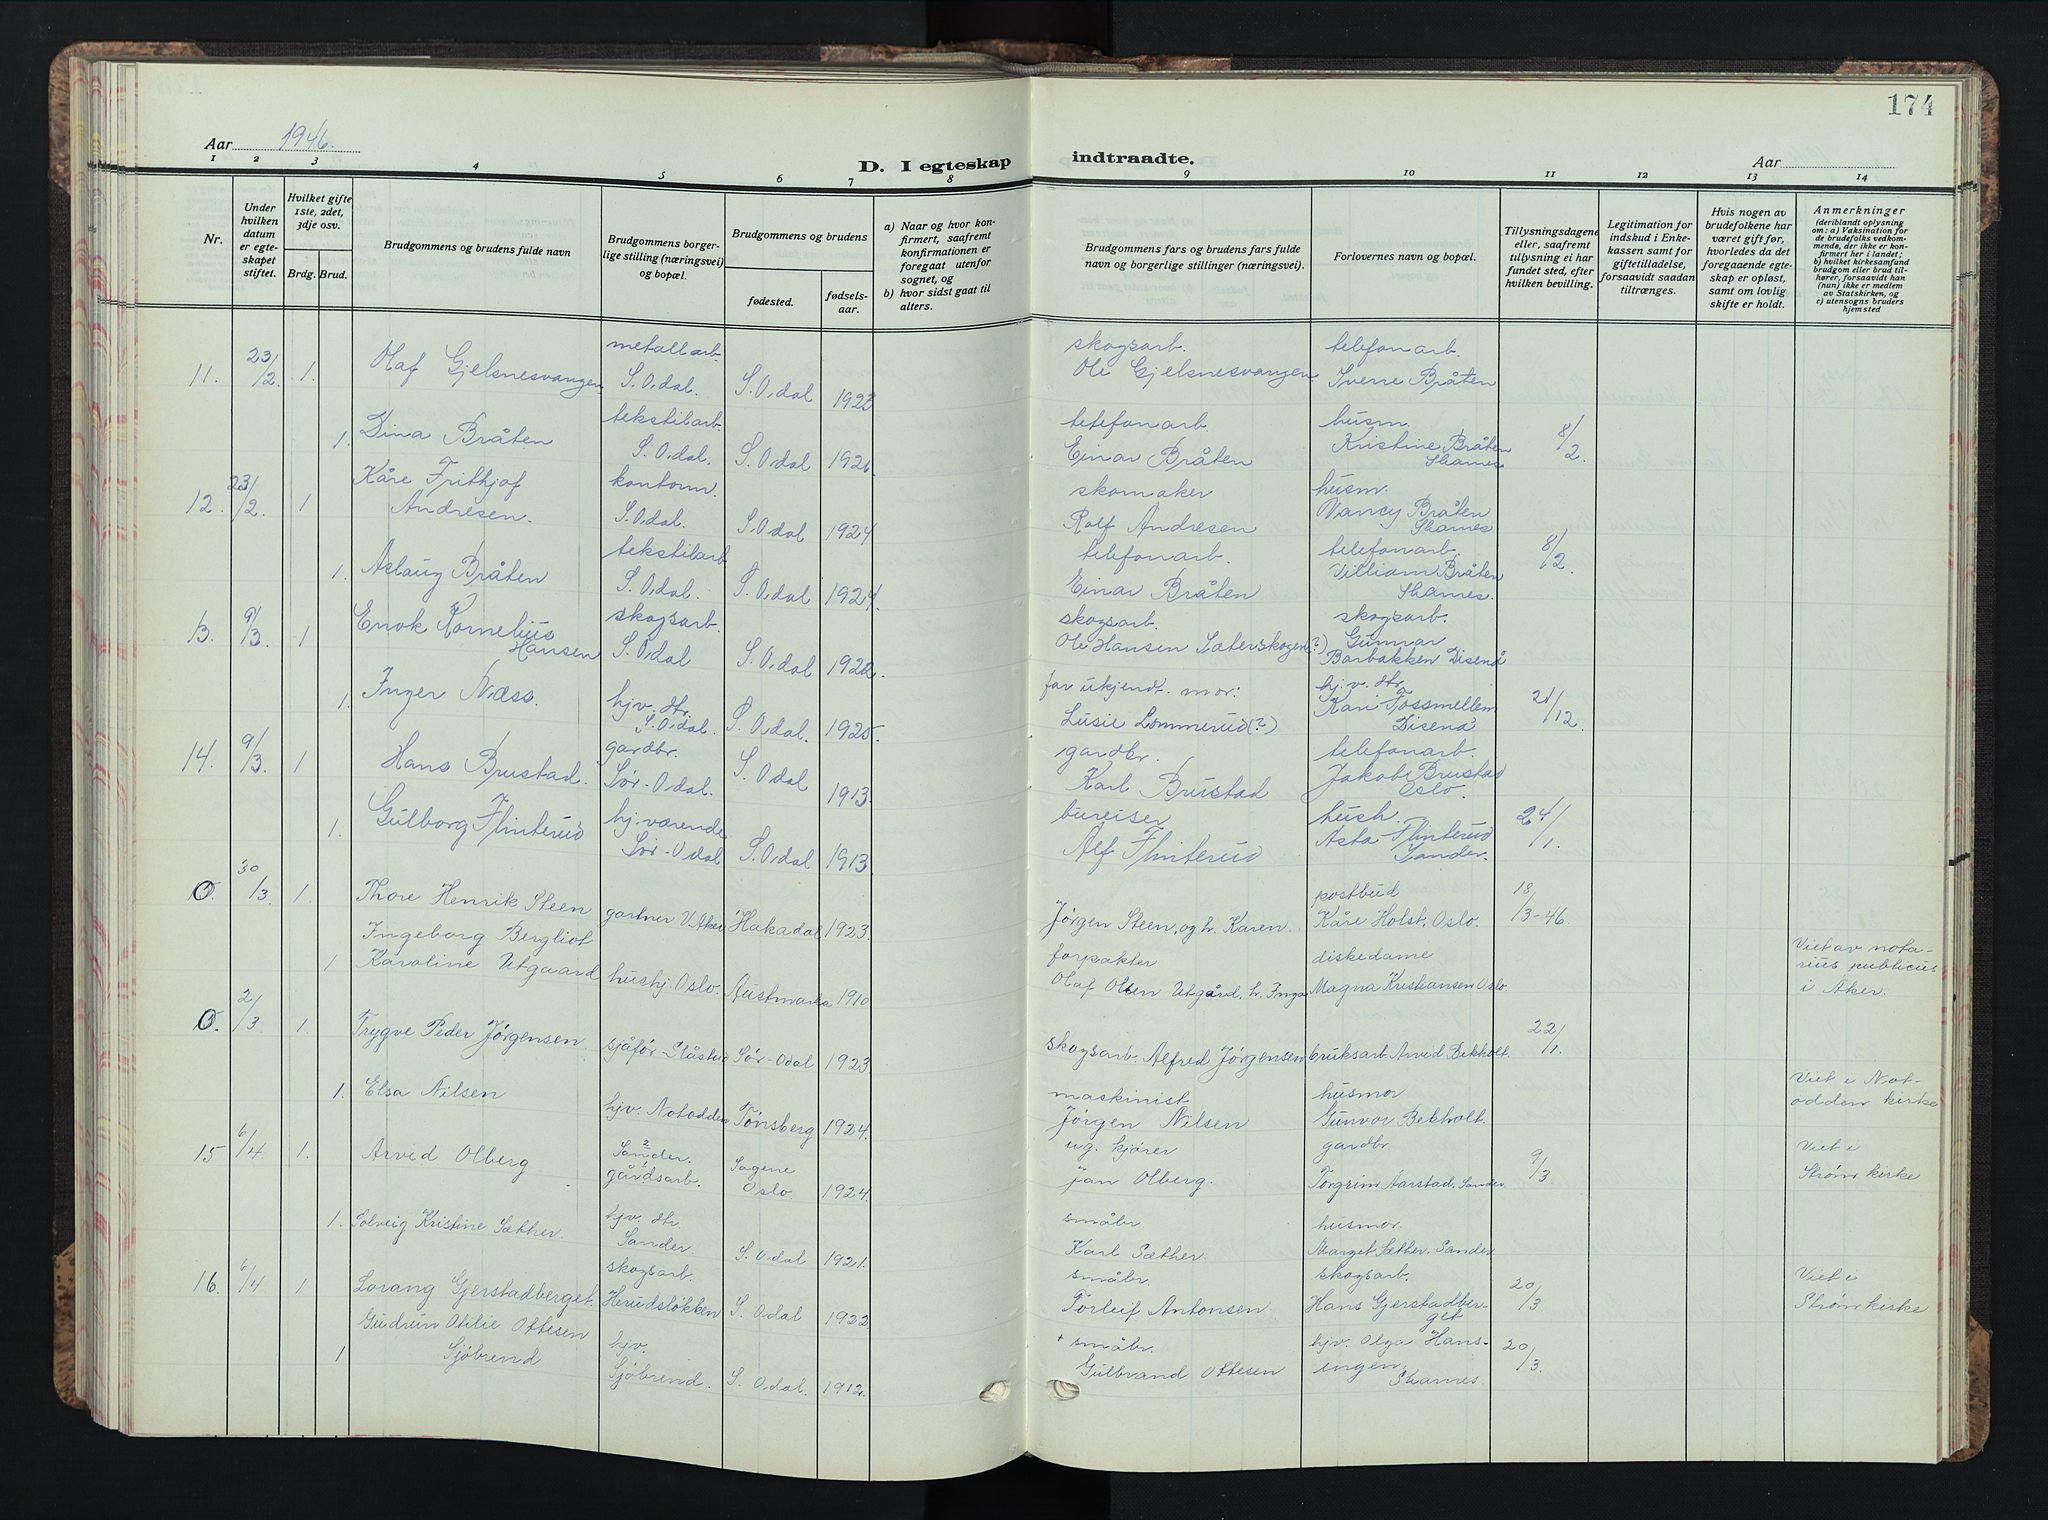 174
Aar 1946.
D. I egteskap indtraadte.
Aar
1 2 3 4 5 6 7 8 9 10 11 12 13 14
Nr.
Under hvilken datum er egteskapet stiftet.
Hvilket gifte 1ste, 2det, 3dje osv.
Brdg. Brud.
Brudgommens og brudens fulde navn
Brudgommens borgerlige stilling (næringsvei) og bopæl.
Brudgommens og brudens
fødested.
fødselsaar.
a) Naar og hvor konfirmert, saafremt konfirmationen er foregaat utenfor sognet, og
b) hvor sidst gaat til alters.
Brudgommens fars og brudens fars fulde navn og borgerlige stillinger (næringsvei).
Forlovernes navn og bopæl.
Tillysningsdagene eller, saafremt tillysning ei har fundet sted, efter hvilken bevilling.
Legitimation for indskud i Enkekassen samt for giftetilladelse, forsaavidt saadan tiltrænges.
Hvis nogen av brudefolkene har været gift før, hvorledes da det foregaaende egteskap er opløst, samt om lovlig skifte er holdt.
Anmerkninger (deriblandt oplysning om: a) Vaksination for de brudefolks vedkommende, der ikke er konfirmert her i landet; b) hvilket kirkesamfund brudgom eller brud tilhører, forsaavidt han (hun) ikke er medlem av Statskirken, og c) utensogns bruders hjemsted
11. 23/2. 1. Olaf Gjelsnesvangen metallarb. S. Odal S. Odal 1922 skogsarb. Ole Gjelsnesvangen telefonarb. Sverre Bråten
1. Dina Bråten tekstilarb. S. Odal. S. Odal 1926 telefonarb. Einar Bråten husm. Kristine Bråten Skarnes 8/2.
12. 23/2. 1 Kåre Frithjof Andresen. kontorm. S. Odal. S. Odal 1924 skomaker Rolf Andresen husm. Nancy Bråten Skarnes
1. Aslaug Bråten tekstilarb S. Odal. S. Odal 1924. telefonarb. Einar Bråten telefonarb. Villiam Bråten Skarnes. 8/2.
13. 9/3. 1 Enok Kornelius Hansen skogsarb. S. Odal S. Odal 1922. skogsarb. Ole Hansen Sæterskogen(?) skogsarb. Gunnar Barbakken Disenå
1. Inger Næss. hjv. dtr. S. Odal. S. Odal. 1925. far ukjendt. mor: Lusie Lommerud(?) hj.v. dtr. Kari Fossmellem Disenå 21/12.
14. 9/3. 1 Hans Brustad. gardbr. Sør-Odal. S. Odal 1913. gardbr. Karl Brustad telefonarb. Jakob Brustad Oslo.
1. Gulborg Flinterud hj.værende Sør-Odal S. Odal 1913. bureiser Alf Flinterud hush. Asta Flinterud Sander. 24/1.
0. 30/3. 1. Thore Henrik Steen gartner V. Aker Hakadal 1923. Jørgen Steen, og h. Karen. postbud Kåre Holst, Oslo. 18/3-46.
1 Ingeborg Bergliot Karoline Utgaard hushj. Oslo. Austmarka 1910 forpakter Olaf Olsen Utgård, h. Inga diskedame Magna Kristiansen Oslo. Viet av notarius publicus i Aker.
0. 2/3 1. Trygve Peder Jørgensen sjåfør-Slåstad Sør-Odal 1923 skogsarb. Alfred Jørgensen bruksarb. Arvid Bekholt. 22/1.
1. Elsa Nilsen hjv. Notodden Tønsberg 1924. maskinist Jørgen Nilsen husmor Gunvor Bekholt. Viet i Notodden kirke
15 6/4 1. Arvid Olberg Sander. gårdsarb. Sagene Oslo. 1924. ug. kjører Jan Olberg. gardbr. Torgrim Aarstad, Sander 9/3 Viet i Strøm kirke
1. Solveig Kristine Sæther. hjv. dtr. Sander. S. Odal 1921. småbr. Karl Sæther. husmor. Marget Sæther. Sander
16. 6/4 1 Lorang Gjerstadberget. skogsarb. Herudsløkken S. Odal 1922 småbr. Torleif Antonsen skogsarb. Hans Gjerstadberget 20/3. Viet i Strøm kirke
1 Gudrun Otilie Ottesen Sjøbrend hjv. Sjøbrend. S. Odal. 1912. + småbr. Gulbrand Ottesen hjv. Olga Hansingen. Skarnes. 20/3.